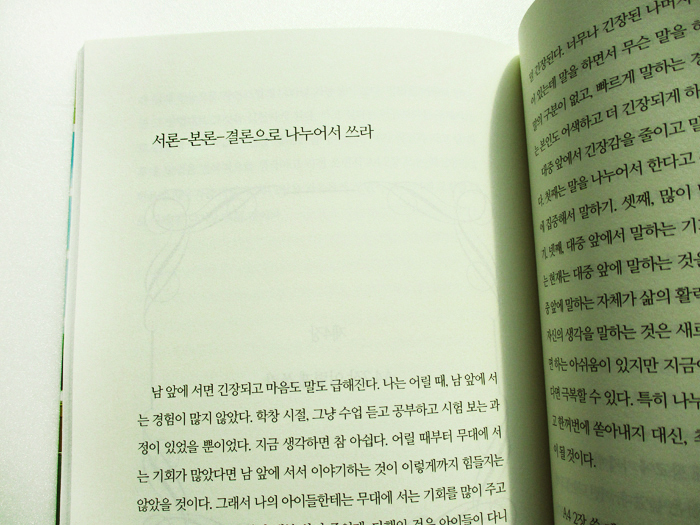 서론-본론-결론으로 나누어서 쓰라
남 앞에 서면 긴장되고 마음도 말도 급해진다. 나는 어릴 때, 남 앞에 서
는 경험이 많지 않았다. 학창 시절, 그냥 수업 듣고 공부하고 시험 보는 과
정이 있었을 뿐이었다. 지금 생각하면 참 아쉽다. 어릴 때부터 무대에 서
는 기회가 많았다면 남 앞에 서서 이야기하는 것이 이렇게까지 힘들지는
않았을 것이다. 그래서 나의 아이들한테는 무대에 서는 기회를 많이 주고
것은 아이들이 다니
긴장된다. 너무나 긴장된 나머지
어 있는데 말을 하면서 무슨 말을
말의 구분이 없고, 빠르게 말하는
는 본인도 어색하고 더 긴장되게 하
대중 앞에서 긴장감을 줄이고 말
다. 첫째는 말을 나누어서 한다고
에 집중해서 말하기. 셋째, 많이
기. 넷째, 대중 앞에서 말하는 기
는 현재는 대중 앞에 말하는 것은
중 앞에 말하는 자체가 삶의 활력
자신의 생각을 말하는 것은 새로
면 하는 아쉬움이 있지만 지금이
다면 극복할 수 있다. 특히 나누
고 한꺼번에 쏟아내지 대신,
이 될 것이다.
A4 2장